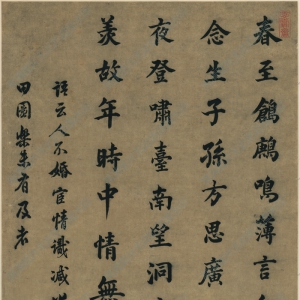 春至鶬鶊鳴薄言
念生子孫方思廣
夜登嘯臺南望洞
羨故年時中情無
語云人不婚宦情識減
田園樂未有及者